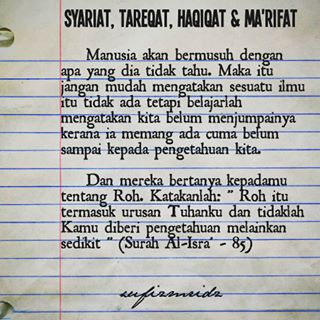 SYARIAT, TAREQAT, HAQIQAT & MA'RIFAT
Manusia akan bermusuh dengan
apa yang dia tidak tahu. Maka itu
jangan mudah mengatakan sesuatu ilmu
itu tidak ada tetapi belajarlah
mengatakan kita belum menjumpainya
kerana ia memang ada cuma belum
sampai kepada pengetahuan kita.
Dan mereka bertanya kepadamu
tentang Roh. Katakanlah: " Roh itu
termasuk urusan Tuhanku dan tidaklah
Kamu diberi pengetahuan melainkan
sedikit " (Surah Al-Isra' - 85)